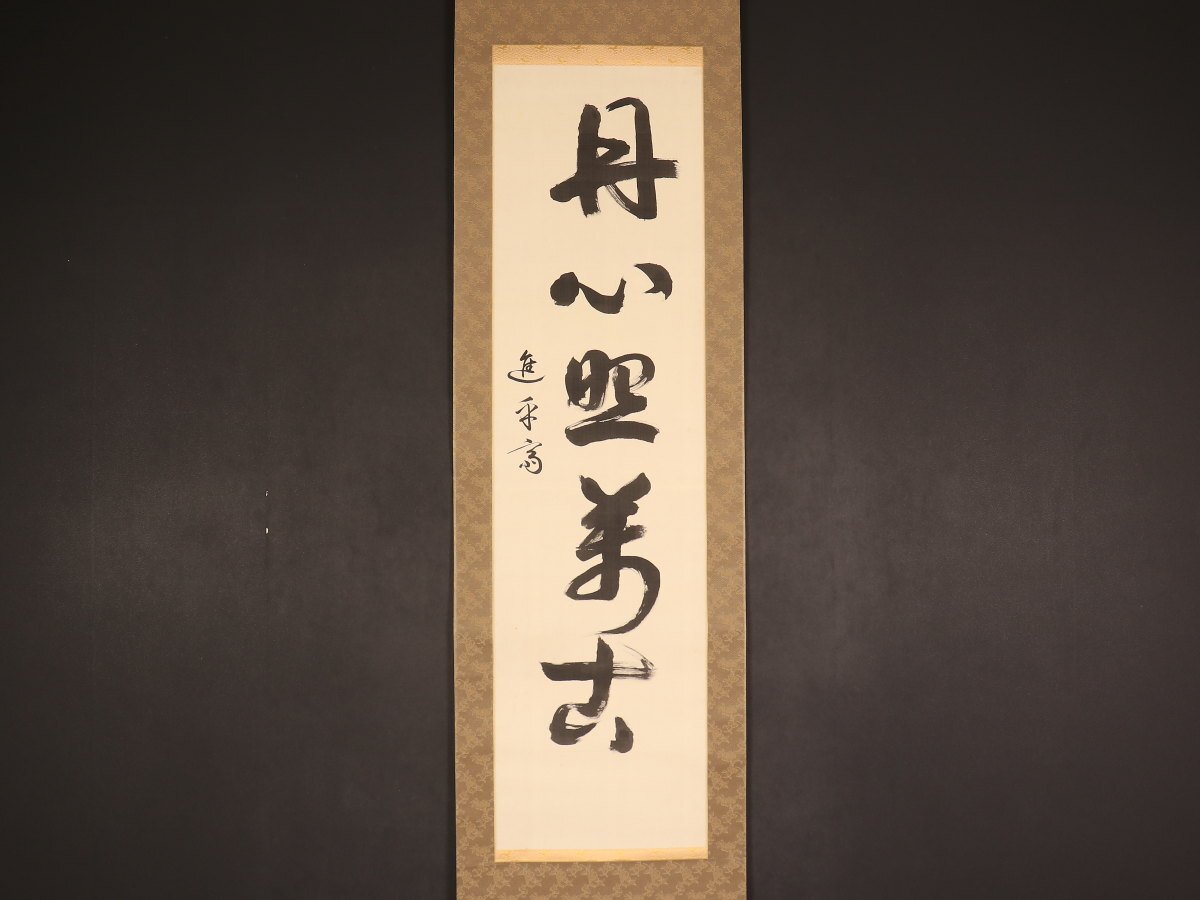 丹心照萬古
進平書